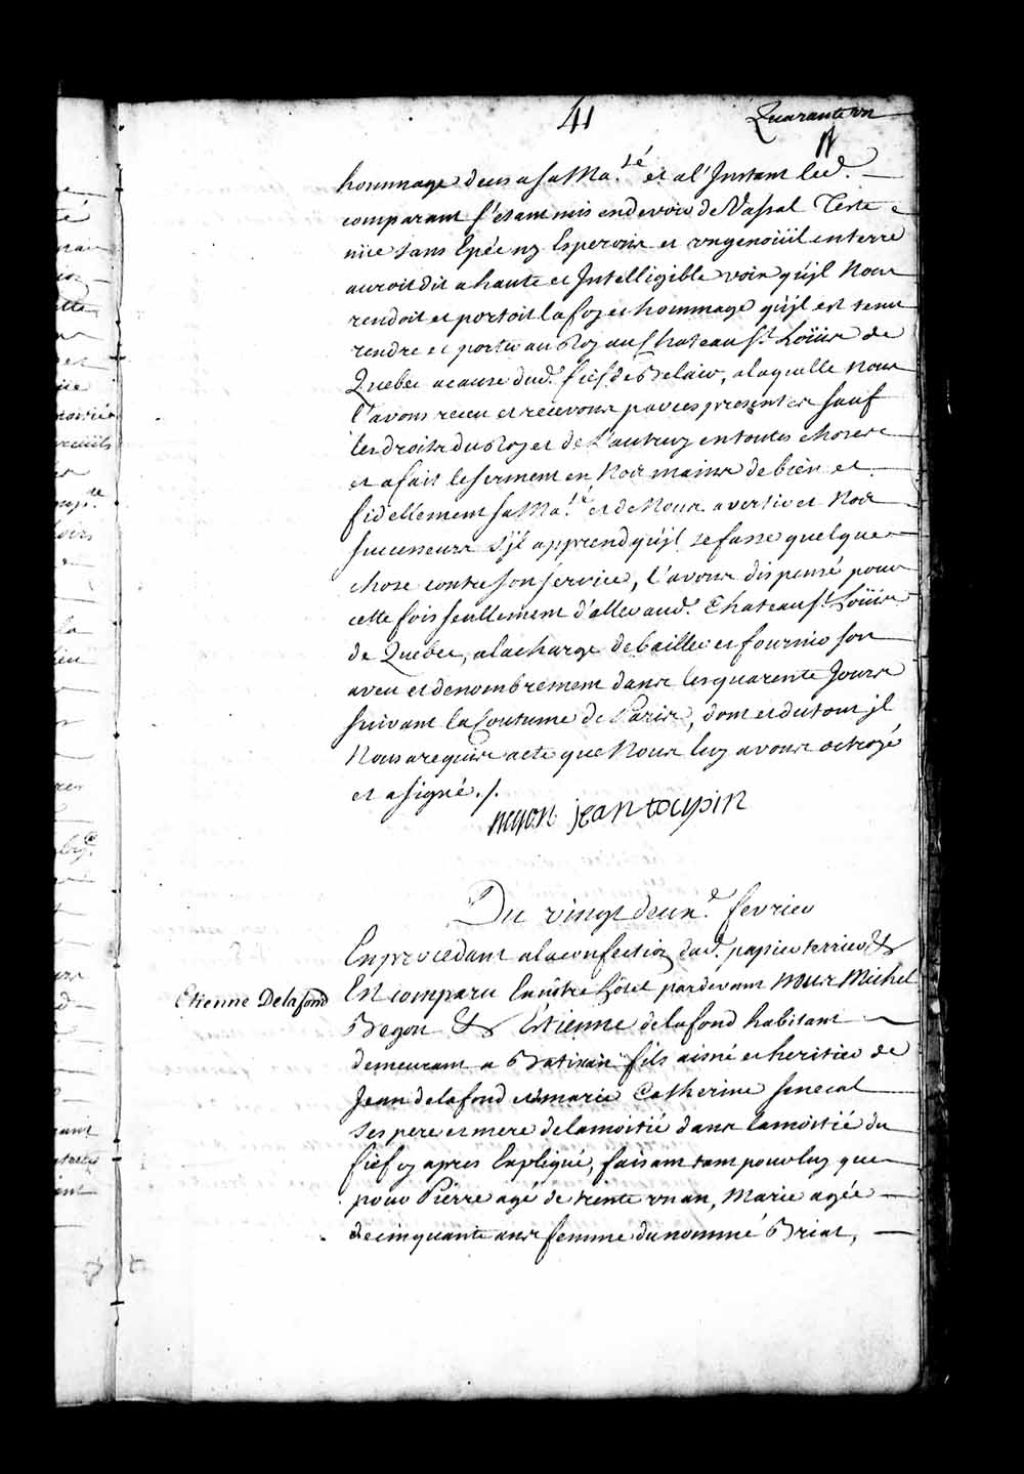 41
Quarante un
hommage deus a sa Ma.té et a l'Instant led.
comparant s'etant mis en devoir de Vassal Teste
nüe sans Epée ny Esperons et un genoüil en terre
auroit dit a haute et Intelligible voix qu'jl Nous
rendoit et portoit la foy et hommage qu'jl est tenu
rendre et porter au Roy au Chateau St. Loüis de
Quebec a cause dud. fief de Belair, a laquelle nous
l'avons receu et recevons par ces presentes sauf
les droits du Roy et de l'autruy en toutes choses
et a fait le serment en Nos mains de bien et
fidellement sa Ma.té et de Nous avertir et Nos
successeurs s'jl apprend qu'jl se fasse quelque
chose contre son service, l'avons dispensé pour
cette fois seullement d'aller aud. Chateau St. Loüis
de Quebec, a la charge de bailler et fournir son
aveu et denombrement dans les quarente Jours
suivant la Coutume de Paris, dont et du tout jl
Nous a requis acte que Nous luy avons octroyé
et a signé./.
jean toupin
Du vingt deux.e fevrier
En procedant a la confection dud. papier terrier &
Etienne Delafond
Est comparu En nôtre hôtel pardevant Nous Michel
Begon & Estienne delafond habitant
demeurant a Batiscan fils aisné et heritier de
Jean delafond et marie Catherine senecal
ses pere et mere de la moitié dans la moitié du
fief cy apres Expliqué, faisant tant pour luy que
pour Pierre agé de trente un an, Marie agée
de cinquante ans femme du nommé Briat,